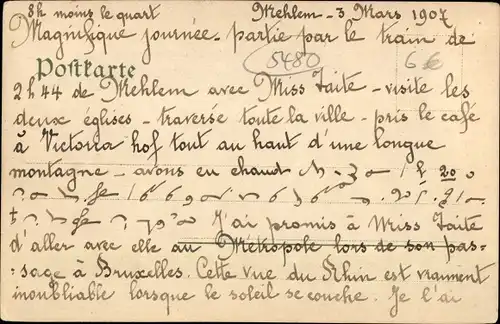 8h moins le quart Mehlem - 3 Mars 1907
Magnifique journée - partie par le train de
5480 6€
Postkarte
2h44 de Mehlem avec Miss Taite - visite les
deux églises - traversé toute la ville - pris le café
à Victoria hof tout au haut d'une longue
montagne - avons eu chaud
J'ai promis à Miss Taite
d'aller avec elle au Métropole lors de son pas-
sage à Bruxelles. Cette vue du Rhin est vraiment
inoubliable lorsque le soleil se couche. Je l'ai